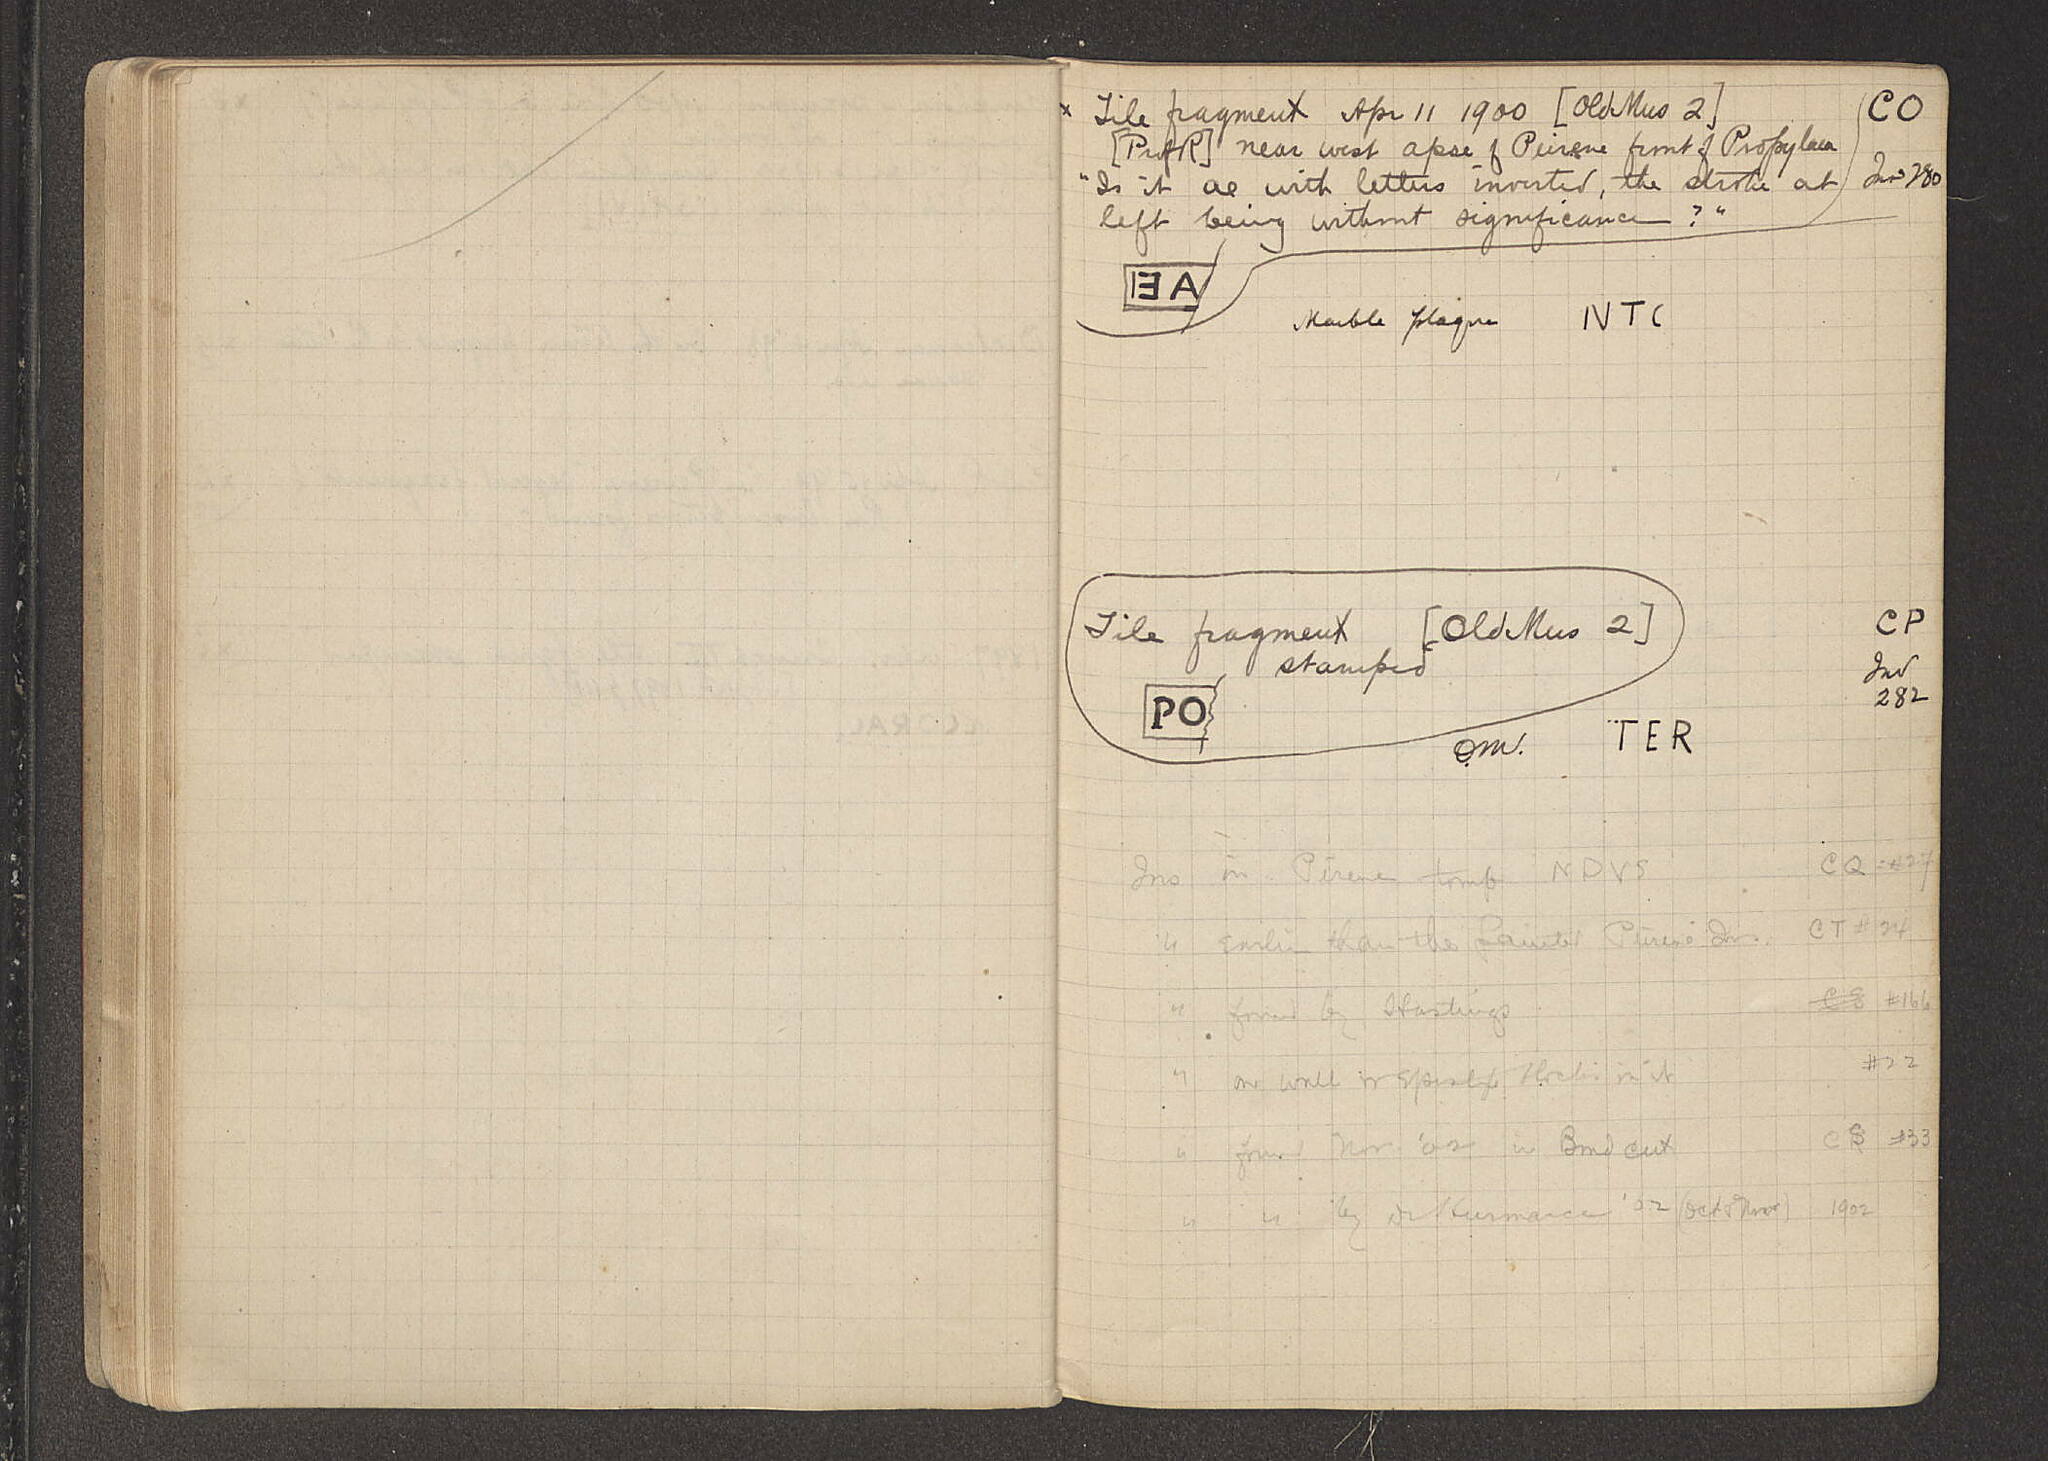 x Tile fragment Apr 11 1900 [Old Mus 2] CO
[Prof R] near west apse of Peirene front of Propylaea
"Is it ae with letters inverted, the stroke at Inv 280
left being without significance?"
IƎA
Marble plaque NTC
Tile fragment [Old Mus 2] CP
stamped Inv
282
PO
om. TER
Ins in Pirene tomb NDVS CQ = #27
" earlier than the painted Pirene Ins. CT #24
" found by Hastings CS #166
" on wall blocks in it #22
" found Nov. '02 in Bond cut #33
" " by '02 (Oct or Nov) 1902